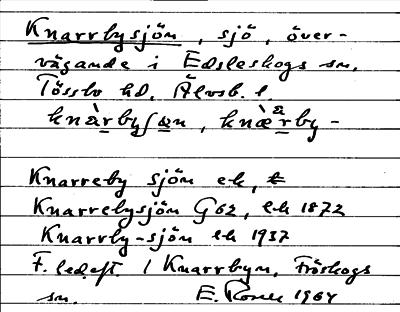 Knarrbysjön, sjö, över-
vägande i Edsleskogs sn.
Tössbo hd. Älvsb. l.
knàrbyʃɷn, knæ̀rby-
Knarreby sjön ek,
Knarrebysjön G62, ek 1872
Knarrby-sjön ek 1937
F. led eft. / Knarrbyn, Fröskogs
sn. E. 1964